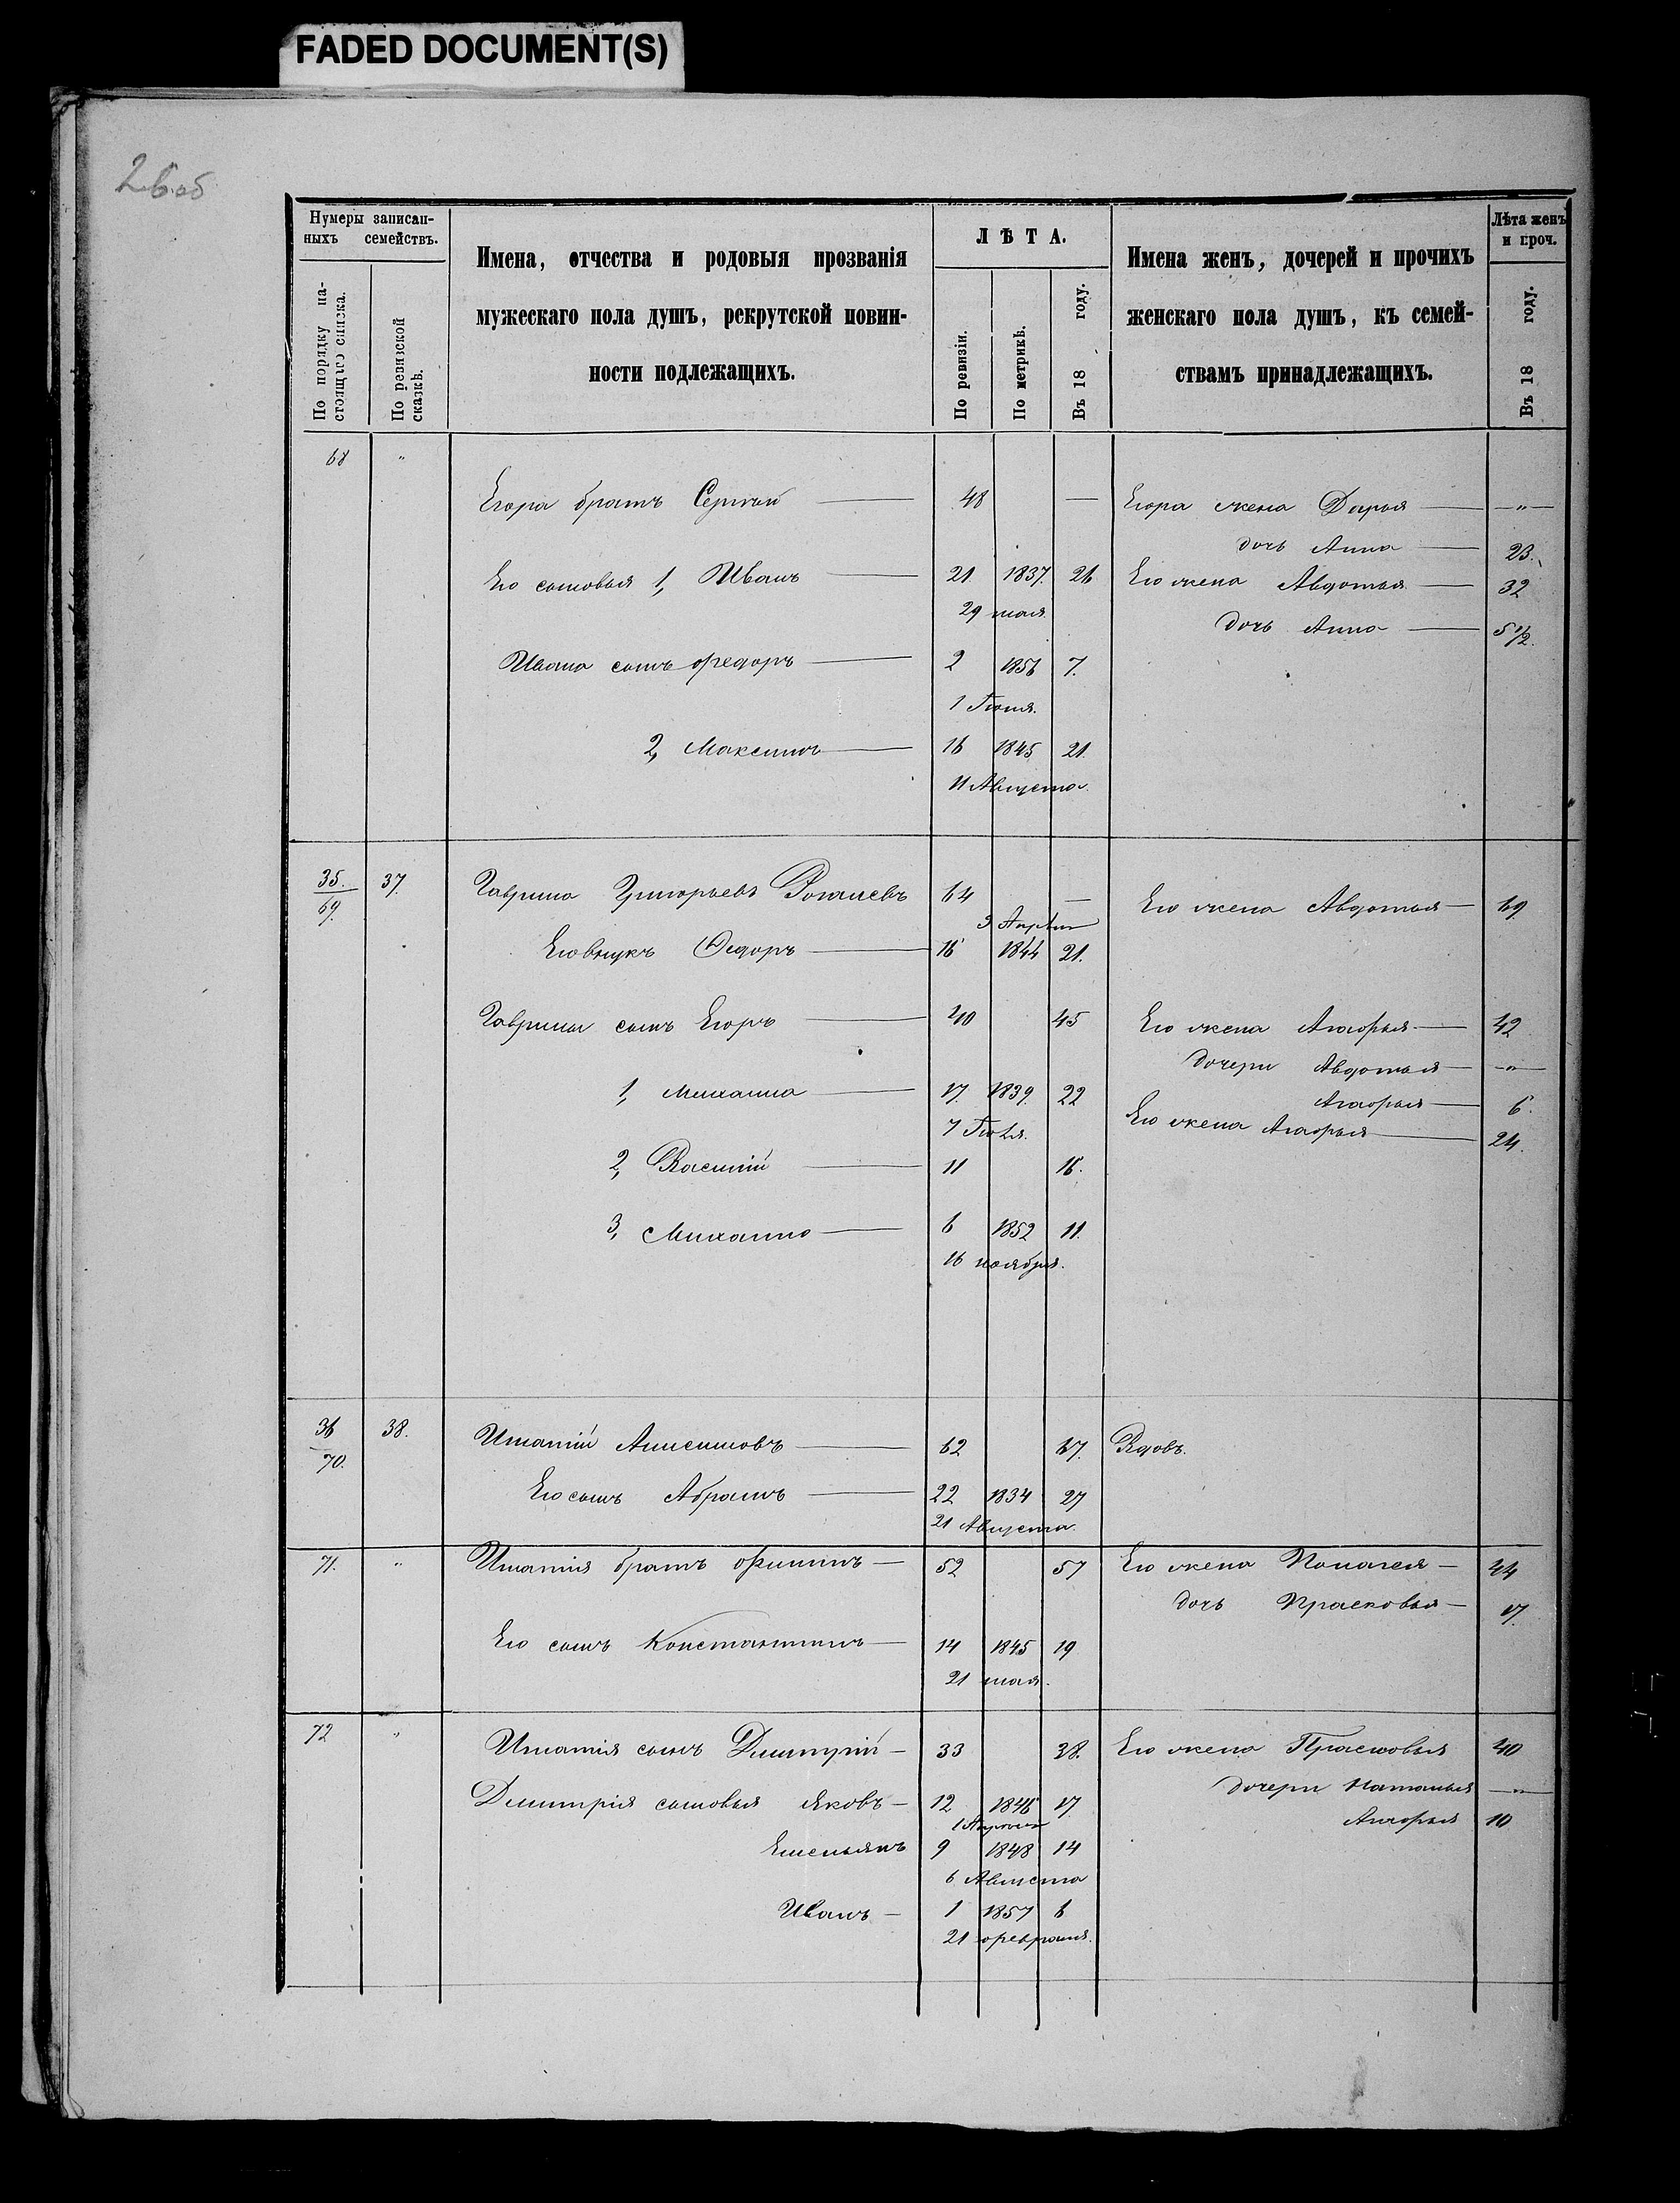 FADED DOCUMENT(S)
26 об
Нумеры записан-
ныхъ семействъ.
По порядку на-
стоящаго списка.
По ревизской
сказкѣ.
Имена, отчества и родовыя прозванія
мужескаго пола душъ, рекрутской повин-
ности подлежащихъ.
ЛѢТА.
По ревизіи.
По метрикѣ.
Въ 18 году.
Имена женъ, дочерей и прочихъ
женскаго пола душъ, къ семей-
ствамъ принадлежащихъ.
Лѣта женъ
и проч.
Въ 18 году.
68 "
Егора братъ Сергѣй — 48 — Егора жена Дарья — "
дочь Анна — 23.
Его сыновья 1, Иванъ — 21 1837 26 Его жена Авдотья — 32
29 мая
дочь Анна — 5 1/2.
Ивана сынъ Федоръ — 2 1856 7.
1 Іюня.
2, Максимъ — 16 1845 21.
11 Августа.
35. 37. Гаврила Григорьевъ 64 — Его жена Авдотья — 69
69.
3 Апрѣля
Его внукъ Ѳедоръ — 16 1844 21.
Гаврилы сынъ Егоръ — 40 45 Его жена Агафья — 42
дочери Авдотья — "
1, Михаила — 17. 1839. 22 Агафья — 6.
7 Іюля. Его жена Агафья — 24.
2, Василій — 11 16.
3, Михаило — 6 1852 11.
16 ноября.
36 38. Игнатій Анисимовъ — 62 67. Вдовъ.
70.
Его сынъ Абрамъ — 22 1834 27
21 Августа.
71. " Игнатія братъ Филипъ — 52 57 Его жена Палагея — 44
дочь Прасковья — 17.
Его сынъ Константинъ — 14 1845 19
21 мая.
72 " Игнатія сынъ Дмитрій — 33 38. Его жена Прасковья 40
дочери Наталья — "
Дмитрія сыновья Яковъ — 12 1846 17
1 Апрѣля Агафья 10
Емельянъ 9 1848 14
6 Августа
Иванъ — 1 1857 6
21 февраля.